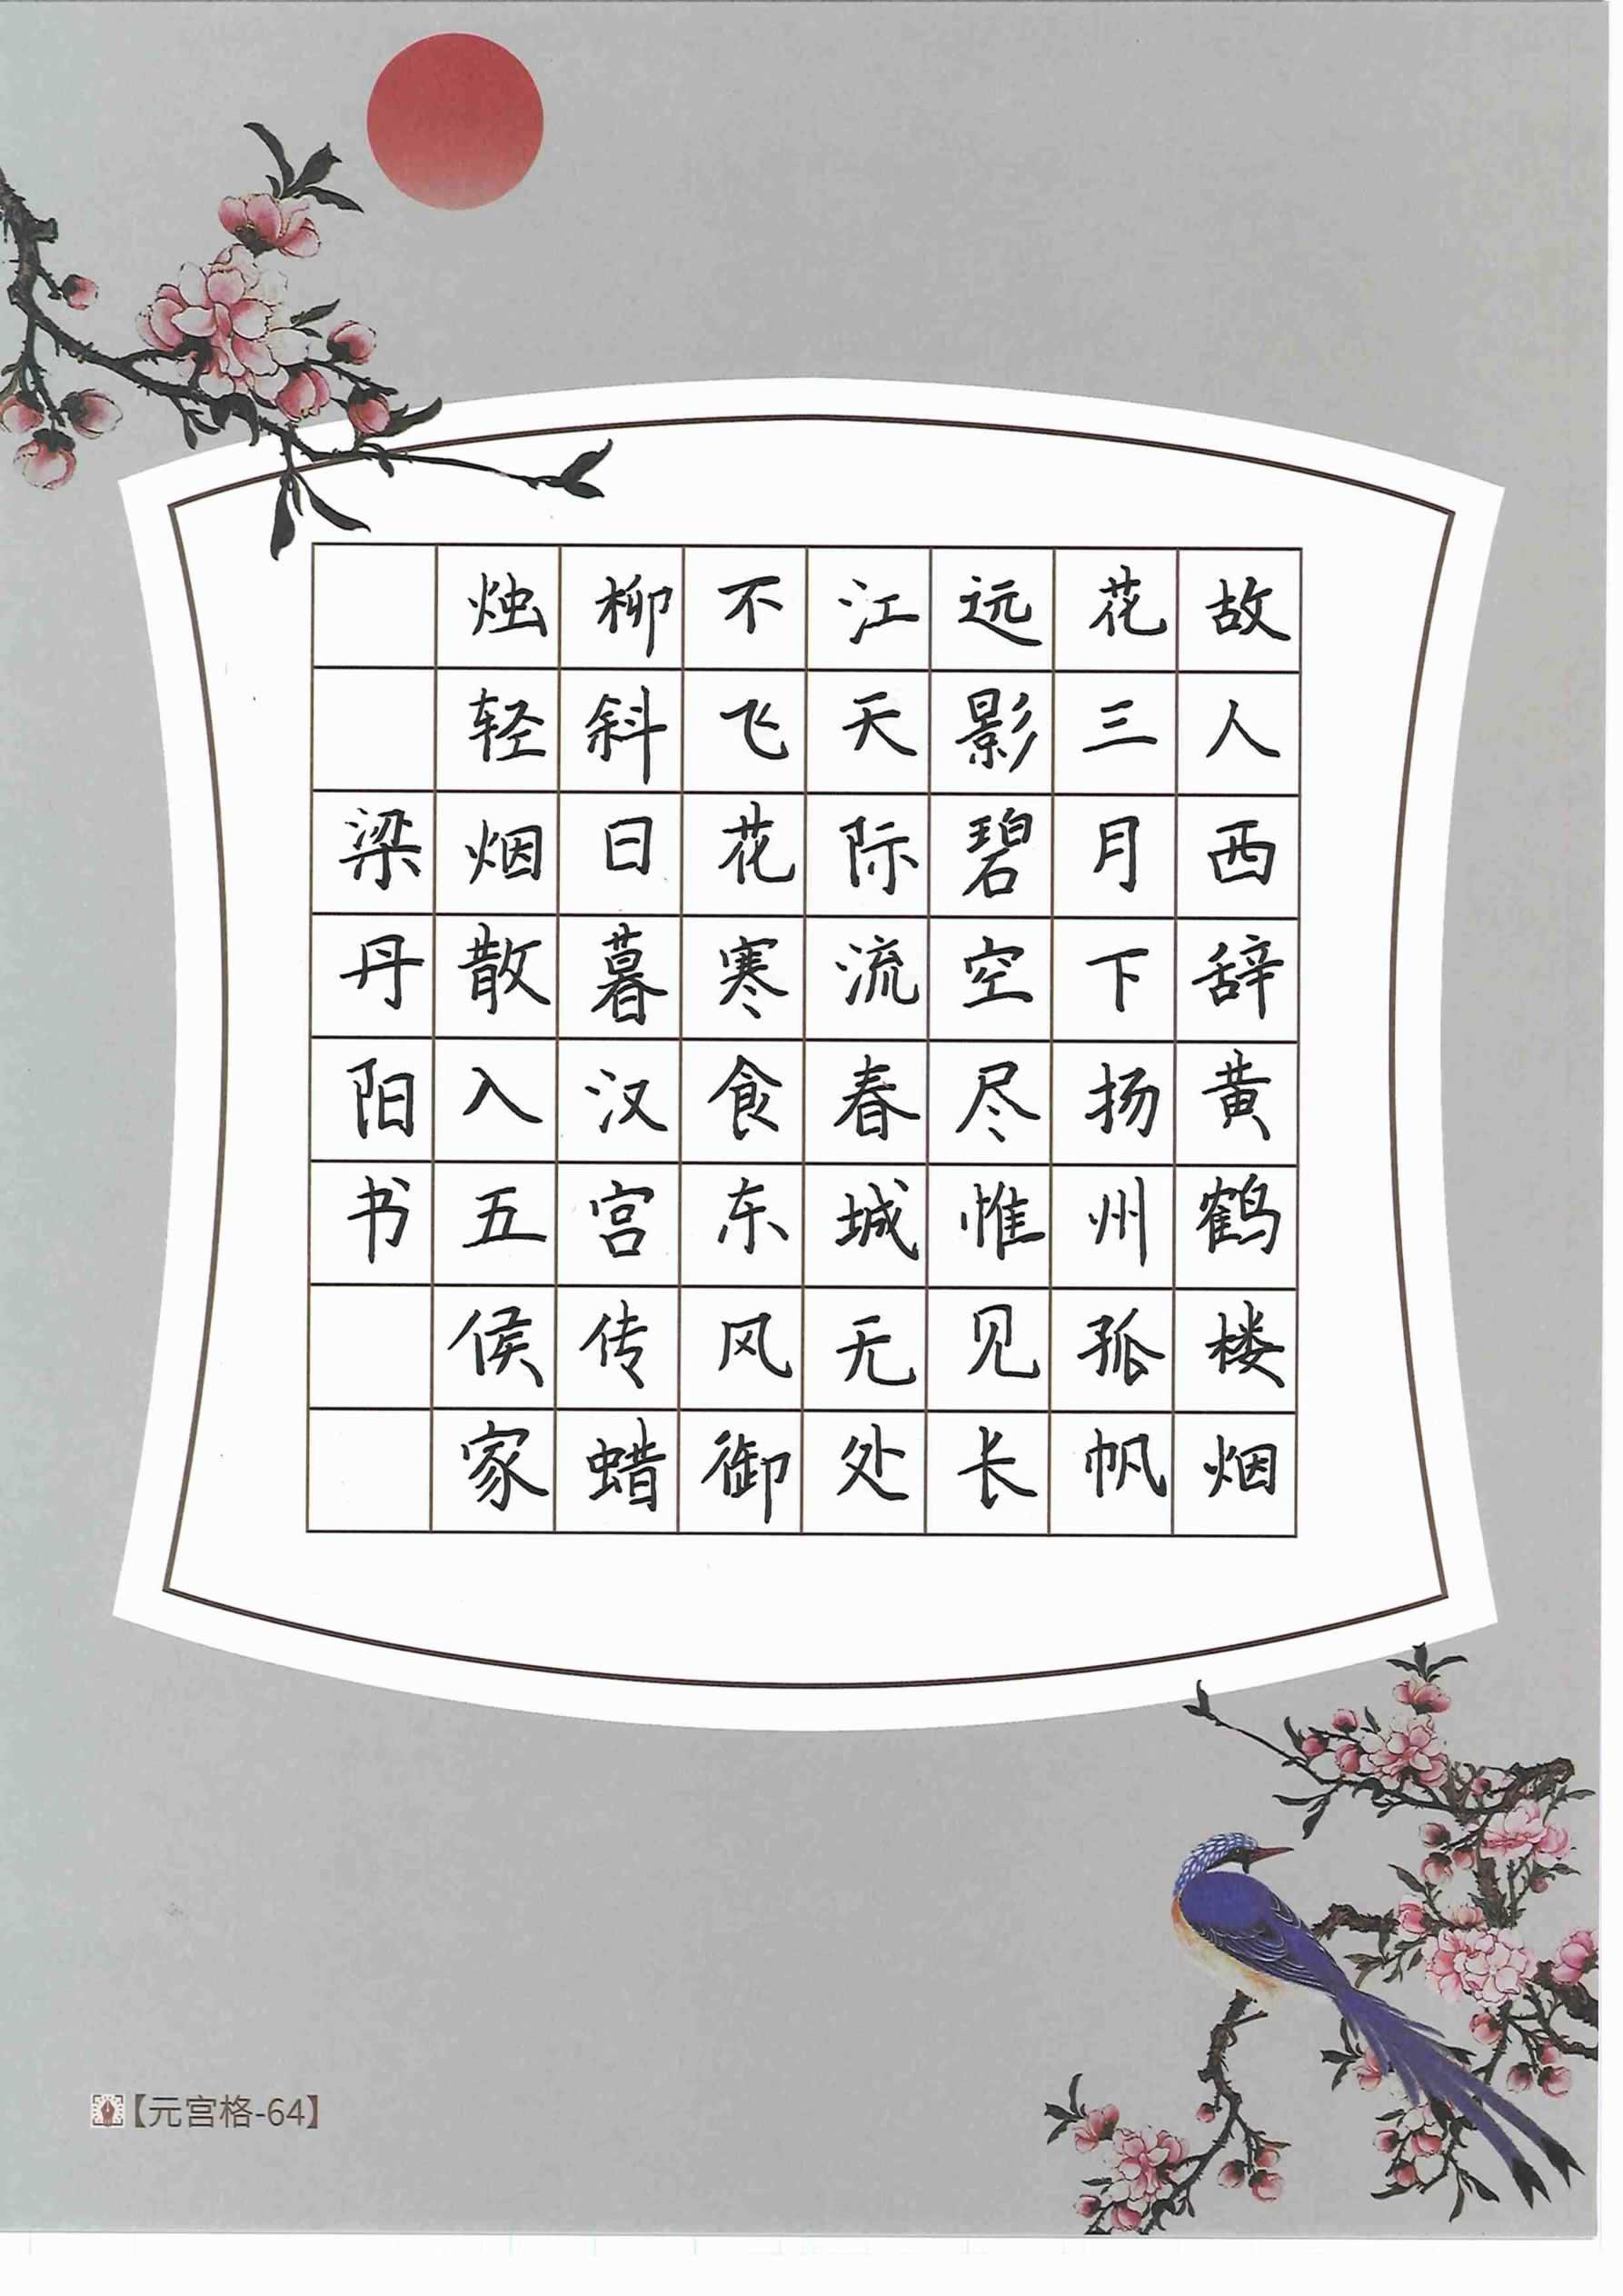 故人西辞黄鹤楼烟
花三月下扬州孤帆
远影碧空尽惟见长
江天际流春城无处
不飞花寒食东风御
柳斜日暮汉宫传蜡
烛轻烟散入五侯家
梁丹阳书
【元宫格-64】